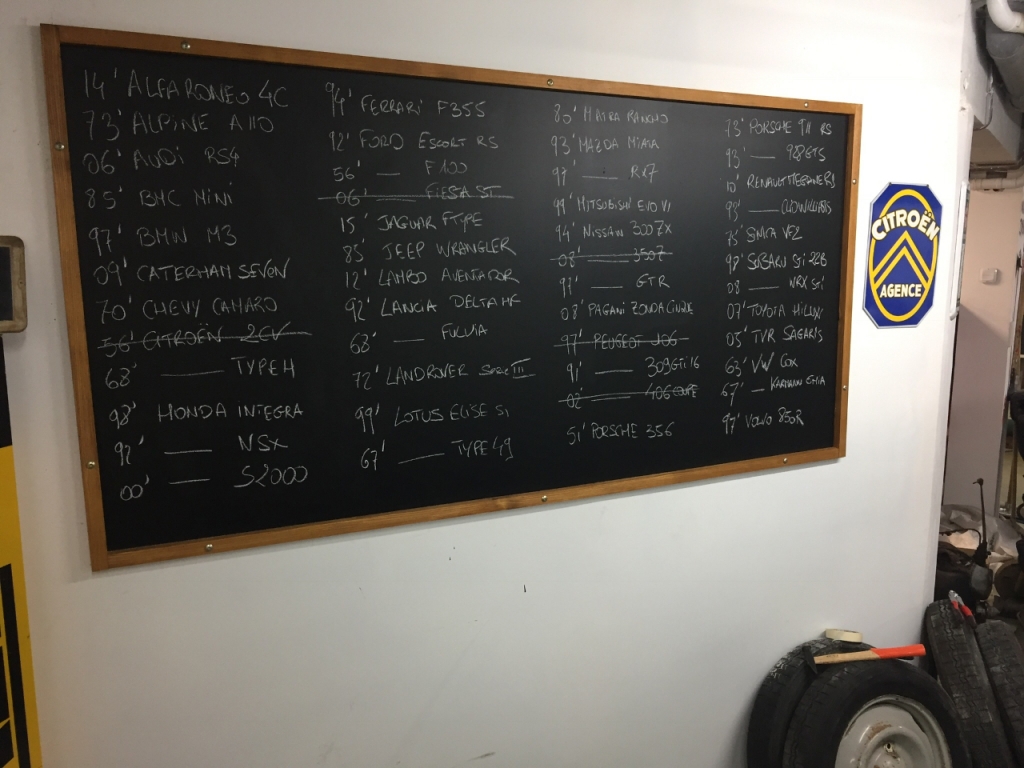 14' ALFAROMEO 4C
73' ALPINE A110
06' AUDI RS4
85' BMC MINI
97' BMW M3
09' CATERHAM SEVEN
70' CHEVY CAMARO
56' CITROËN 2CV
68' —— TYPE H
98' HONDA INTEGRA
92' —— NSX
00' —— S2000
94' FERRARI F355
92' FORD ESCORT RS
56' — F100
06' —— FIESTA ST
15' JAGUAR FTYPE
85' JEEP WRANGLER
12' LAMBO AVENTADOR
92' LANCIA DELTA HF
68' — FULVIA
72' LANDROVER Serie III
99' LOTUS ELISE S1
67' —— TYPE 49
80' MATRA RANCHO
93' MAZDA MIATA
97' —— RX7
99' MITSUBISHI EVO VI
94' NISSAN 300ZX
08' —— 350Z
97' —— GTR
08' PAGANI ZONDA CINQUE
97' PEUGEOT 106
91' —— 309 GTI 16
02' —— 406 COUPE
51' PORSCHE 356
73' PORSCHE 911 RS
93' —— 928 GTS
10' RENAULT MEGANE RS
95' —— CLIO WILLIAMS
75' SIMCA
98' SUBARU STI 22B
08 —— WRX STI
07' TOYOTA HILUX
05' TVR SAGARIS
63' VW COX
67' — KARMANN GHIA
97' VOLVO 850R
CITROËN
AGENCE